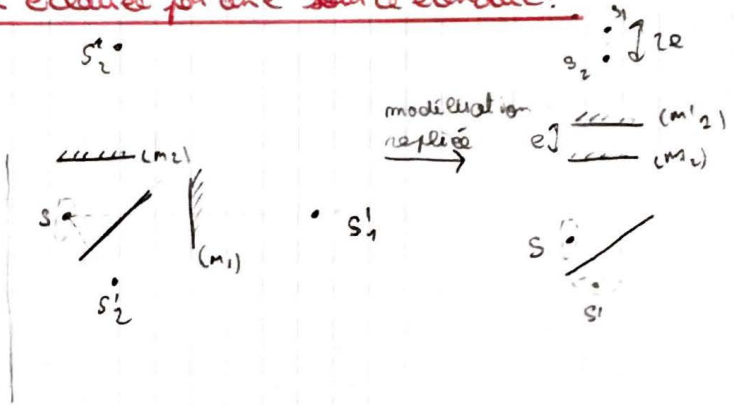 éclairée par une source étendue.
S1
2e
S2
S2"
modélisation
repliée
e
(M'2)
(M2)
(M2)
S
S'1
(M1)
S'2
S
S'